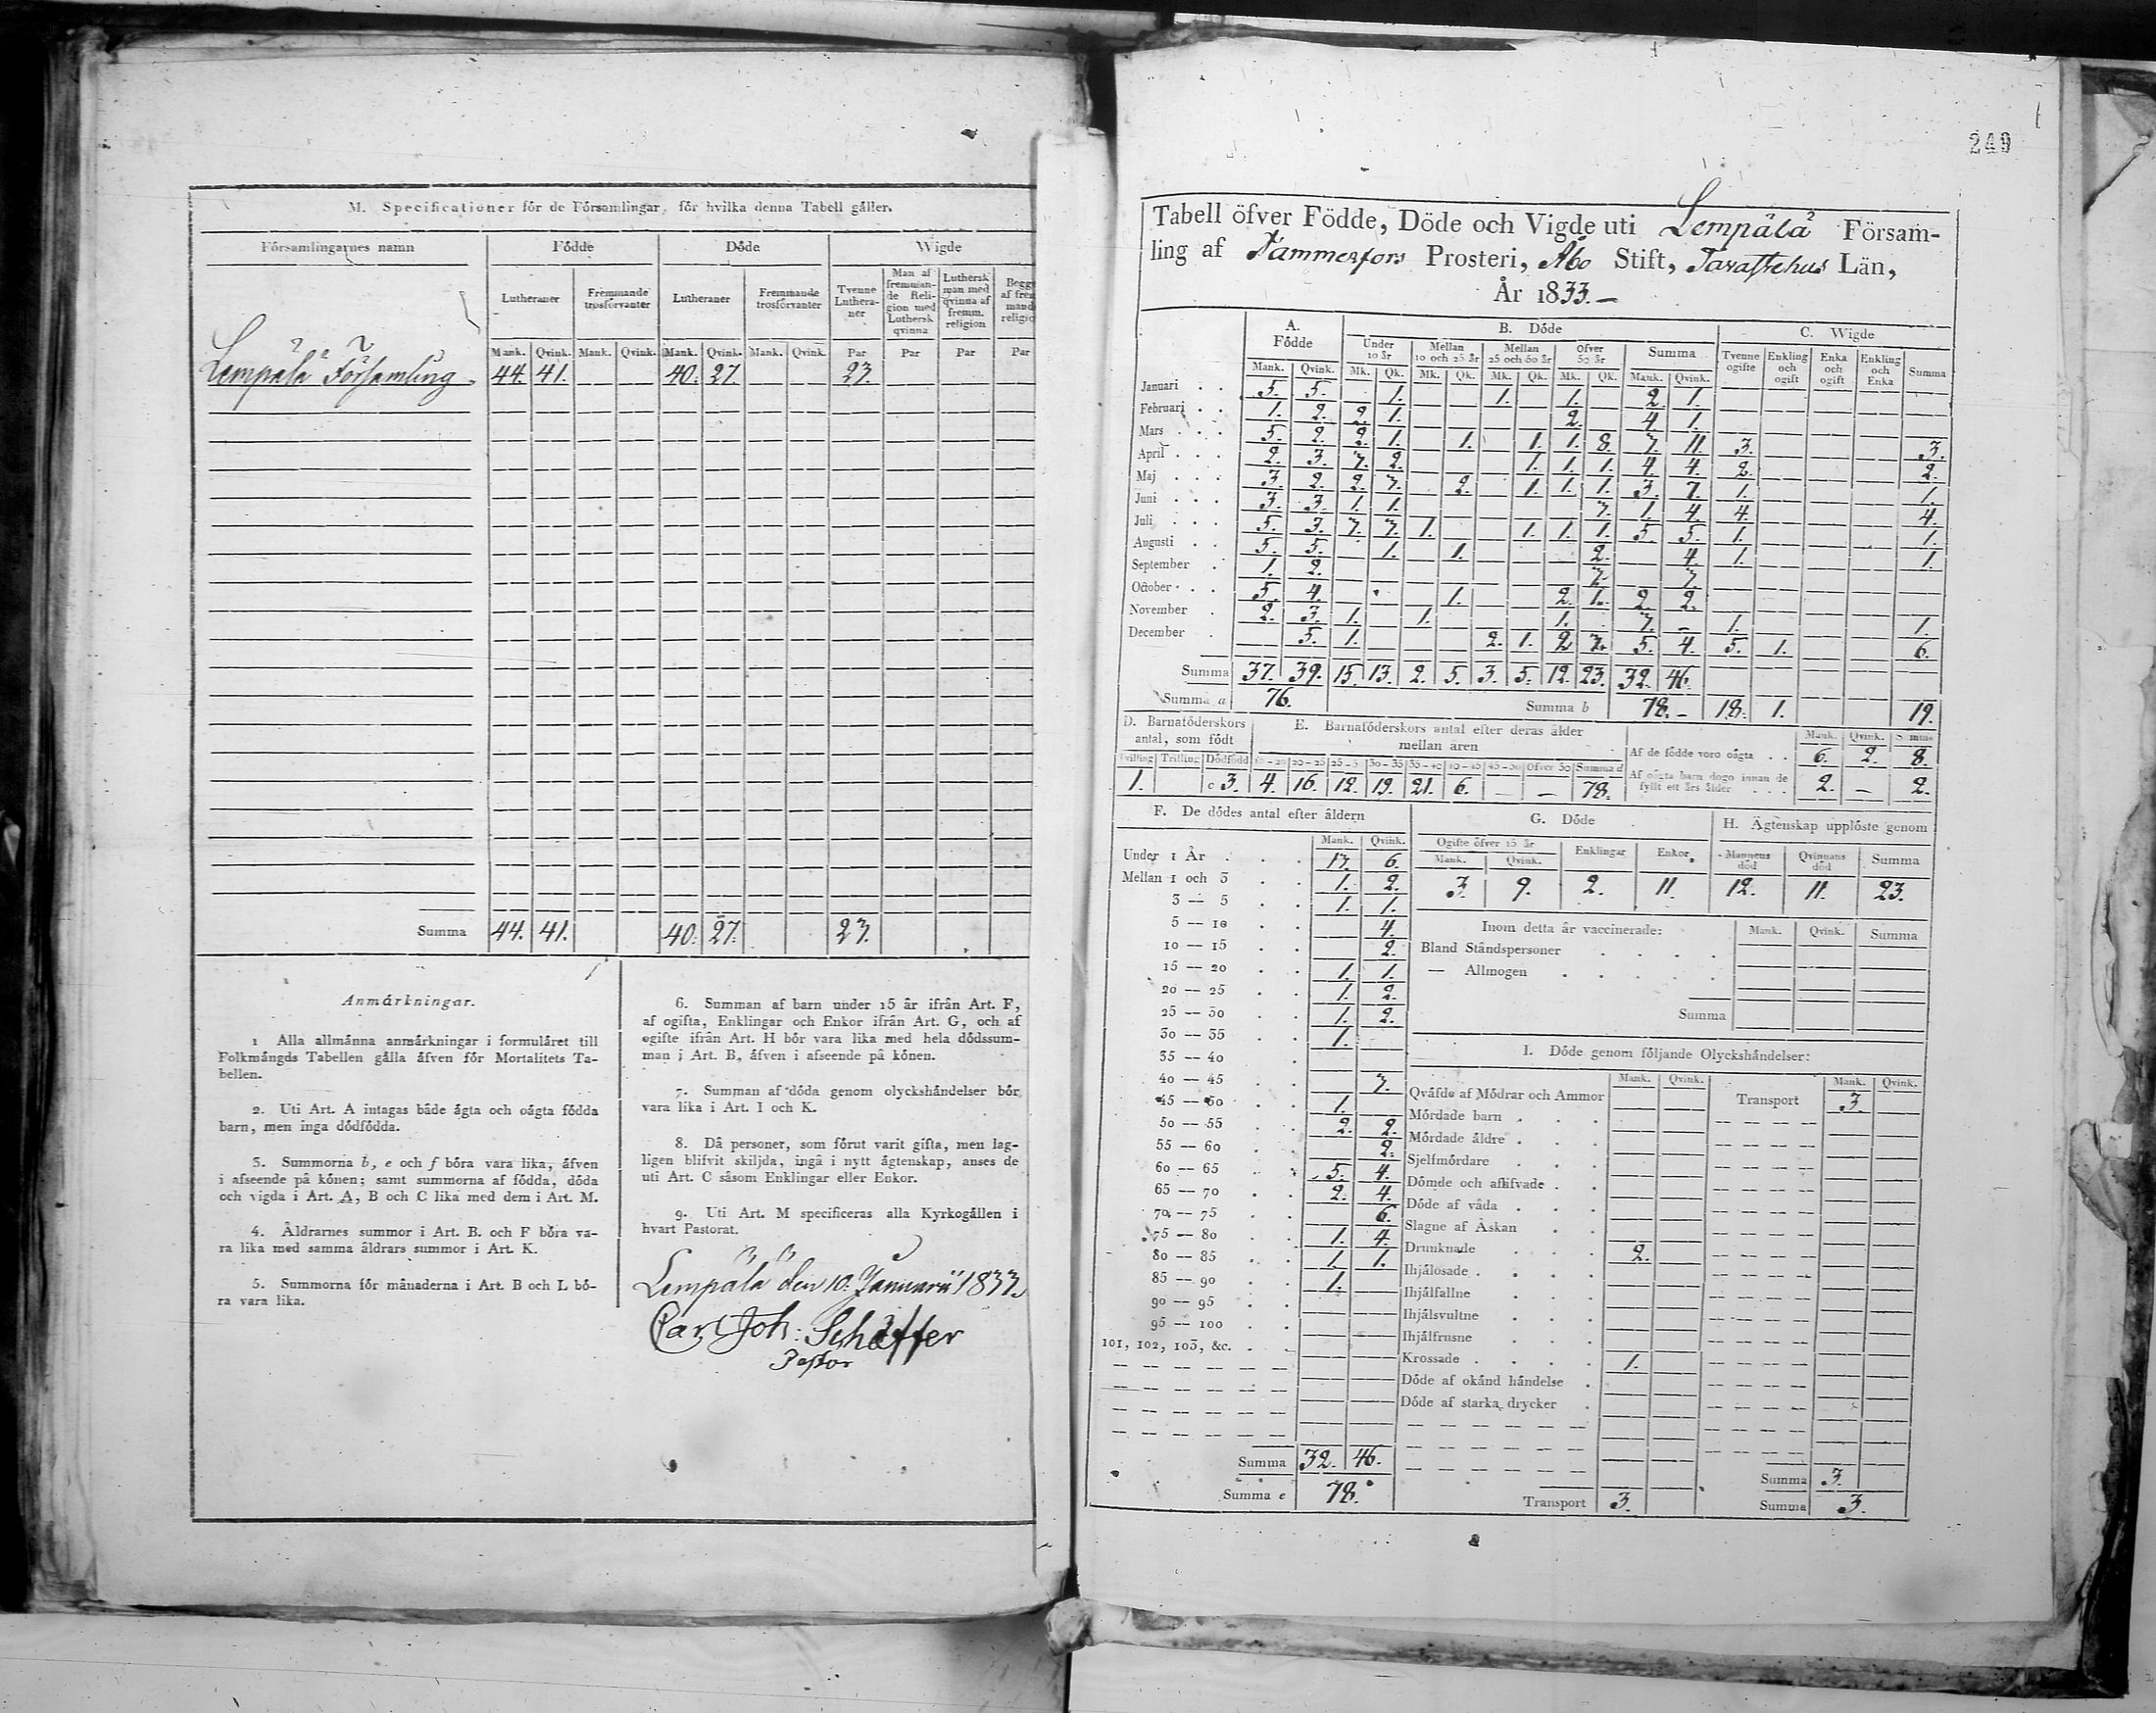 M. Specificationer för de Församlingar, för hvilka denna Tabell gäller.
Församlingarnes namn | Födde | Döde | Wigde
Lutheraner | Fremmande trosförvanter | Lutheraner | Fremmande trosförvanter | Tvenne Lutheraner | Man af fremmande Religion med Luthersk qvinna | Luthersk man med qvinna af fremm. religion
Mank. Qvink. Mank. Qvink. Mank. Qvink. Mank. Qvink. Par Par Par Par
Lempälä Församling. 44. 41. 40. 27. 23.
Summa 44. 41. 40. 27. 23.
Anmärkningar.
1 Alla allmänna anmärkningar i formuläret till
Folkmängds Tabellen gälla äfven för Mortalitets Ta-
bellen.
2. Uti Art. A intagas både ägta och oägta födda
barn, men inga dödfödda.
3. Summorna b, e och f böra vara lika, äfven
i afseende på könen; samt summorna af födda, döda
och vigda i Art. A, B och C lika med dem i Art. M.
4. Åldrarnes summor i Art. B. och F böra va-
ra lika med samma åldrars summor i Art. K.
5. Summorna för månaderna i Art. B och L bö-
ra vara lika.
6. Summan af barn under 15 år ifrån Art. F,
af ogifta, Enklingar och Enkor ifrån Art. G, och af
gifte ifrån Art. H bör vara lika med hela dödssum-
man i Art. B, äfven i afseende på könen.
7. Summan af döda genom olyckshändelser bör
vara lika i Art. I och K.
8. Då personer, som förut varit gifta, men lag-
ligen blifvit skiljda, ingå i nytt ägtenskap, anses de
uti Art. C såsom Enklingar eller Enkor.
9. Uti Art. M specificeras alla Kyrkogällen i
hvart Pastorat.
Lempälä den 10. Januarii 1833.
Carl Joh: Schäffer
Pastor
249
Tabell öfver Födde, Döde och Vigde uti Lempälä Försam-
ling af Tammerfors Prosteri, Åbo Stift, Tavastehus Län,
År 1833.
A. Födde | B. Döde | C. Wigde
Under 10 år | Mellan 10 och 25 år | Mellan 25 och 50 år | Öfver 50 år | Summa | Tvenne ogifte | Enkling och ogift | Enka och ogift | Enkling och Enka | Summa
Mank. Qvink. Mk. Qk. Mk. Qk. Mk. Qk. Mk. Qk. Mank. Qvink.
Januari 5. 5. 1. 1. 1. 2. 1.
Februari 1. 2. 2. 1. 2. 4. 1.
Mars 5. 2. 2. 1. 1. 1. 1. 8. 3. 11. 3. 3.
April 2. 3. 3. 2. 1. 1. 1. 4. 4. 2. 2.
Maj 3. 2. 2. 3. 2. 1. 1. 1. 3. 7. 1. 1.
Juni 3. 3. 1. 1. 3. 1. 4. 4. 4.
Juli 5. 3. 3. 3. 1. 1. 1. 1. 5. 5. 1. 1.
Augusti 5. 5. 1. 1. 2. 4. 1. 1.
September 1. 2. 3. 3.
October 5. 4. 1. 2. 1. 2. 2.
November 2. 3. 1. 1. 1. 3. 1. 1.
December 5. 1. 2. 1. 2. 3. 5. 4. 5. 1. 6.
Summa 37. 39. 15. 13. 2. 5. 3. 5. 12. 23. 32. 46.
Summa a 76. Summa b 78. 18. 1. 19.
D. Barnaföderskors antal, som födt
Tvilling Trilling Dödfödd
1. c 3.
E. Barnaföderskors antal efter deras ålder mellan åren
20-25 25-30 30-35 35-40 40-45 45-50 Öfver 50 Summa d
4. 16. 12. 19. 21. 6. — — 78.
Mank. Qvink. Summa
Af de födde voro oägta 6. 2. 8.
Af oägta barn dogo innan de fyllt ett års ålder 2. — 2.
F. De dödes antal efter åldern
Mank. Qvink.
Under 1 År 13. 6.
Mellan 1 och 3 1. 2.
3 — 5 1. 1.
5 — 10 4.
10 — 15 2.
15 — 20 1. 1.
20 — 25 1. 2.
25 — 30 1. 2.
30 — 35 1.
35 — 40
40 — 45 3.
45 — 50 1.
50 — 55 2. 2.
55 — 60 2.
60 — 65 5. 4.
65 — 70 2. 4.
70 — 75 6.
75 — 80 1. 4.
80 — 85 1. 1.
85 — 90 1.
90 — 95
95 — 100
101, 102, 103, &c.
Summa 32. 46.
Summa e 78.
G. Döde
Ogifte öfver 15 år | Enklingar | Enkor
Mank. Qvink.
3. 9. 2. 11.
H. Ägtenskap upplöste genom
Mannens död | Qvinnans död | Summa
12. 11. 23.
Inom detta år vaccinerade: Mank. Qvink. Summa
Bland Ståndspersoner
— Allmogen
Summa
I. Döde genom följande Olyckshändelser:
Mank. Qvink. Mank. Qvink.
Qväfde af Mödrar och Ammor Transport 3.
Mördade barn
Mördade äldre
Sjelfmördare
Dömde och aflifvade
Döde af våda
Slagne af Åskan
Drunknade 2.
Ihjälosade
Ihjälfallne
Ihjälsvultne
Ihjälfrusne
Krossade 1.
Döde af okänd händelse
Döde af starka drycker
Summa 3.
Transport 3. Summa 3.